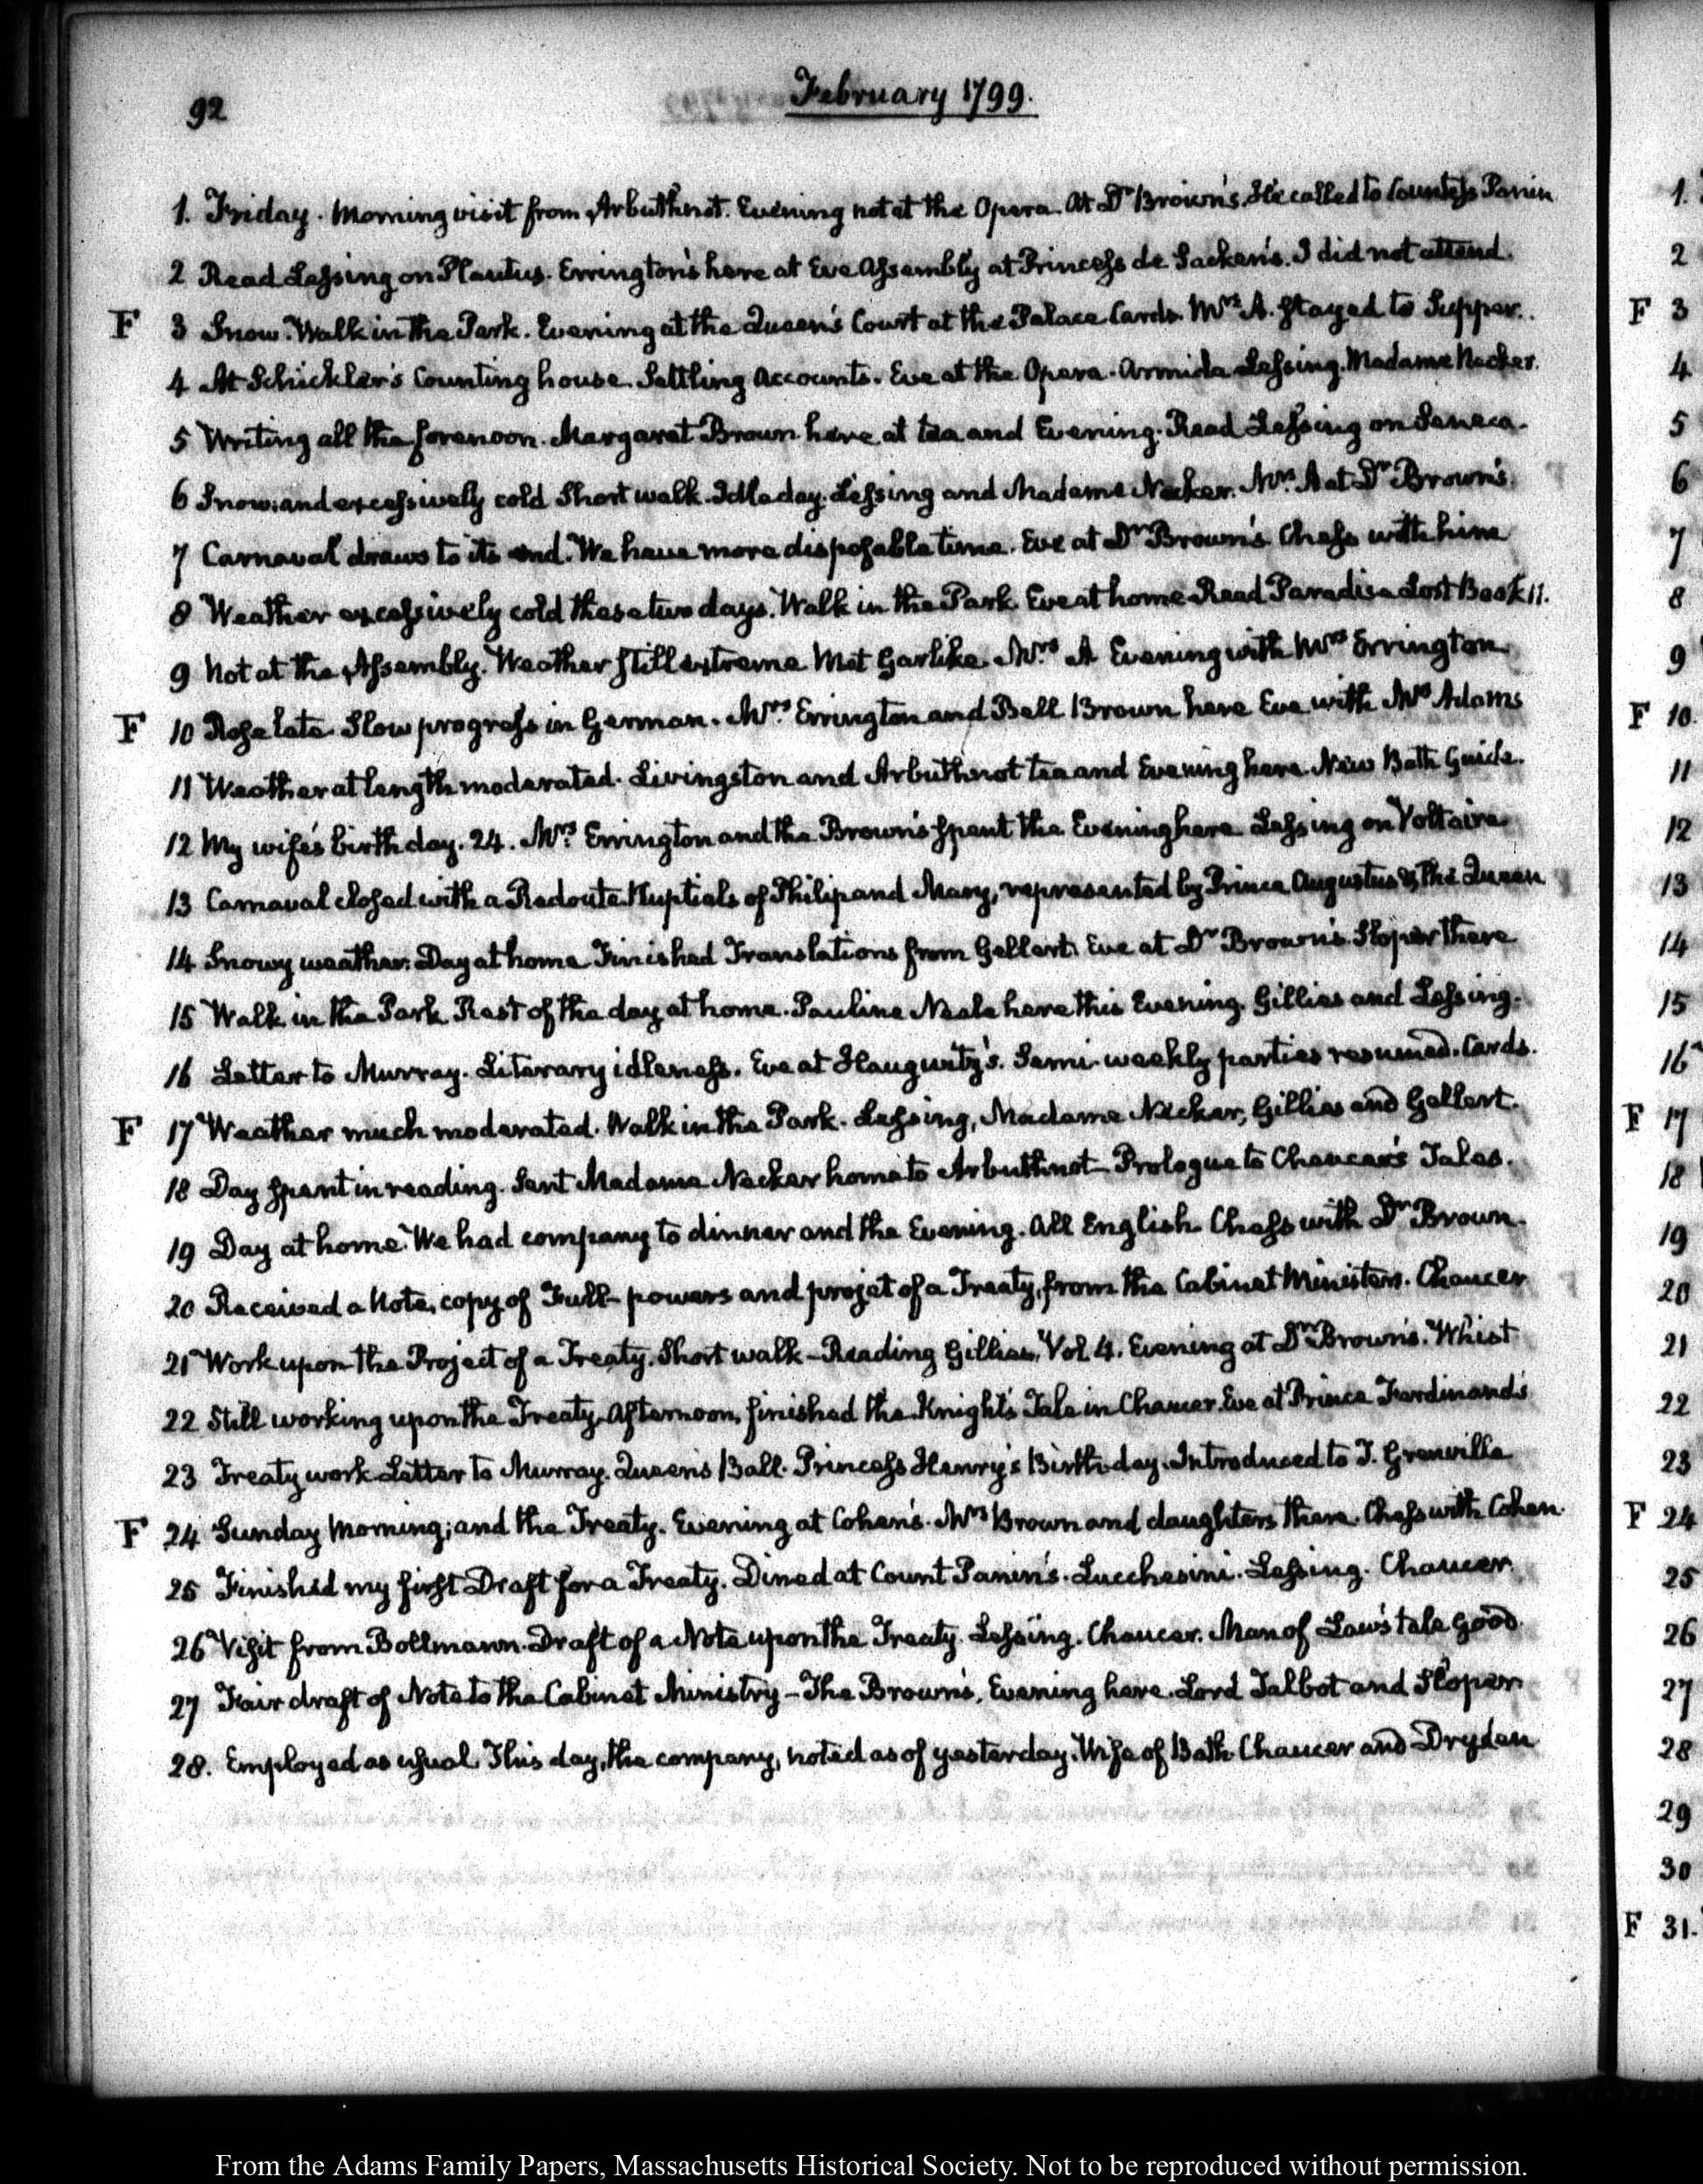 92
February 1799.
1. Friday. Morning visit from Arbuthnot. Evening not at the Opera. At Dr Brown's. He called to Countess Panin
2 Read Lessing on Plautus. Errington's here at Eve Assembly at Princess de Sacken's. I did not attend.
F 3 Snow. Walk in the Park. Evening at the Queen's Court at the Palace Cards. Mrs A. stayed to Supper.
4 At Schickler's Counting house. Settling Accounts. Eve at the Opera. Armida Lessing. Madame Necker.
5 Writing all the forenoon. Margaret Brown here at tea and Evening. Read Lessing on Seneca.
6 Snow; and excessively cold Short walk. Idle day. Lessing and Madame Necker. Mrs. A at Dr Brown's.
7 Carnaval draws to its end. We have more disposable time. Eve at Dr Brown's. Chess with him
8 Weather excessively cold these two days. Walk in the Park. Eve at home Read Paradise Lost Book 11.
9 Not at the Assembly. Weather still extreme Met Garlike. Mrs. A Evening with Mrs Errington
F 10 Rose late. Slow progress in German. Mrs. Errington and Bell Brown here Eve with Mrs Adams
11 Weather at length moderated. Livingston and Arbuthnot tea and Evening here. New Bath Guide.
12 My wife's birth day. 24. Mrs. Errington and the Brown's spent the Evening here Lessing on Voltaire
13 Carnaval closed with a Redoute Nuptials of Philip and Mary, represented by Prince Augustus & the Queen
14 Snowy weather. Day at home Finished Translations from Gellert. Eve at Dr Brown's. Sloper there
15 Walk in the Park Rest of the day at home. Pauline Neale here this Evening. Gillies and Lessing.
16 Letter to Murray. Literary idleness. Eve at Haugwitz's. Semi-weekly parties resumed. Cards.
F 17 Weather much moderated. Walk in the Park. Lessing, Madame Necker, Gillies and Gellert.
18 Day spent in reading. Sent Madame Necker home to Arbuthnot Prologue to Chaucer's Tales.
19 Day at home. We had company to dinner and the Evening. All English. Chess with Dr Brown.
20 Received a Note, copy of Full-powers and projet of a Treaty, from the Cabinet Ministers. Chaucer
21 Work upon the Project of a Treaty. Short walk - Reading Gillies, Vol. 4. Evening at Dr Brown's. Whist
22 Still working upon the Treaty. Afternoon, finished the Knight's Tale in Chaucer. Eve at Prince Ferdinand's
23 Treaty work Letter to Murray. Queen's Ball. Princess Henry's Birth-day. Introduced to T. Grenville
F 24 Sunday Morning; and the Treaty. Evening at Cohen's. Mrs Brown and daughters there. Chess with Cohen.
25 Finished my first Draft for a Treaty. Dined at Count Panin's. Lucchesini. Lessing. Chaucer.
26 Visit from Bollmann. Draft of a Note upon the Treaty. Lessing. Chaucer. Man of Law's tale good.
27 Fair draft of Note to the Cabinet Ministry - The Brown's, Evening here. Lord Talbot and Sloper
28. Employed as usual This day, the company, noted as of yesterday. Wife of Bath Chaucer and Dryden
1.
2
F 3
4
5
6
7
8
9
F 10.
11
12
13
14
15
16
F 17
18
19
20
21
22
23
F 24
25
26
27
28
29
30
F 31.
From the Adams Family Papers, Massachusetts Historical Society. Not to be reproduced without permission.